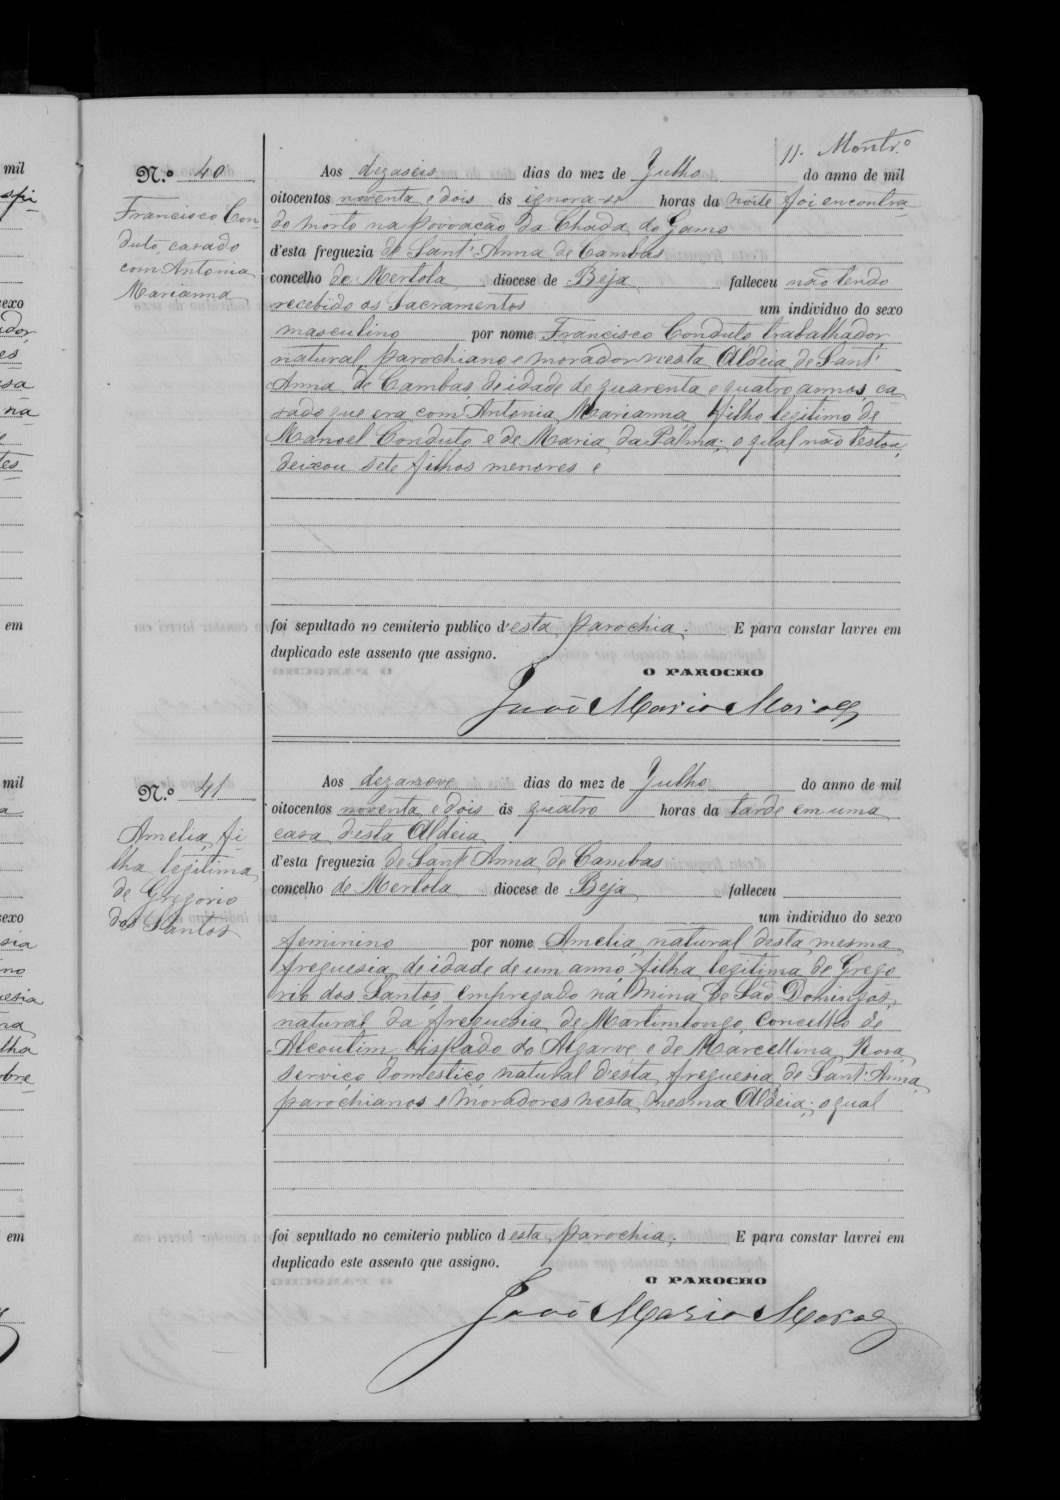 11. Montr.º
N.º 40
Francisco Con-
duto, casado
com Antonia
Marianna
Aos dezaseis dias do mez de Julho do anno de mil
oitocentos noventa e dois ás ignora-se horas da noite foi encontra
do morto na povoacão da Chada do Gamo
d'esta freguezia de Sant'Anna de Cambas
concelho de Mertola diocese de Beja falleceu não tendo
recebido os Sacramentos um individuo do sexo
masculino por nome Francisco Conduto trabalhador,
natural, parochiano e morador nesta Aldeia de Sant'
Anna de Cambas, de idade de quarenta e quatro annos, ca
sado que era com Antonia Marianna, filho legitimo de
Manoel Conduto e de Maria da Palma; o qual não testou,
deixou sete filhos menores e
foi sepultado no cemiterio publico d'esta parochia. E para constar lavrei em
duplicado este assento que assigno.
O PAROCHO
João Maria Moraes
N.º 41
Amelia, fi-
lha legitima
de Gregorio
dos Santos
Aos dezanove dias do mez de Julho do anno de mil
oitocentos noventa e dois ás quatro horas da tarde em uma
casa d'esta Aldeia
d'esta freguezia de Sant'Anna de Cambas
concelho de Mertola diocese de Beja falleceu
um individuo do sexo
feminino por nome Amelia, natural desta mesma
freguesia, de idade de um anno, filha legitima de Grego
rio dos Santos, empregado na Mina de São Domingos,
natural da freguesia de Martimlongo, Concelho de
Alcoutim, bispado do Algarve e de Marcellina Rosa,
serviço domestico, natural d'esta freguesia de Sant'Anna,
parochianos e moradores nesta mesma Aldeia; o qual
foi sepultado no cemiterio publico d esta parochia. E para constar lavrei em
duplicado este assento que assigno.
O PAROCHO
João Maria Moraes